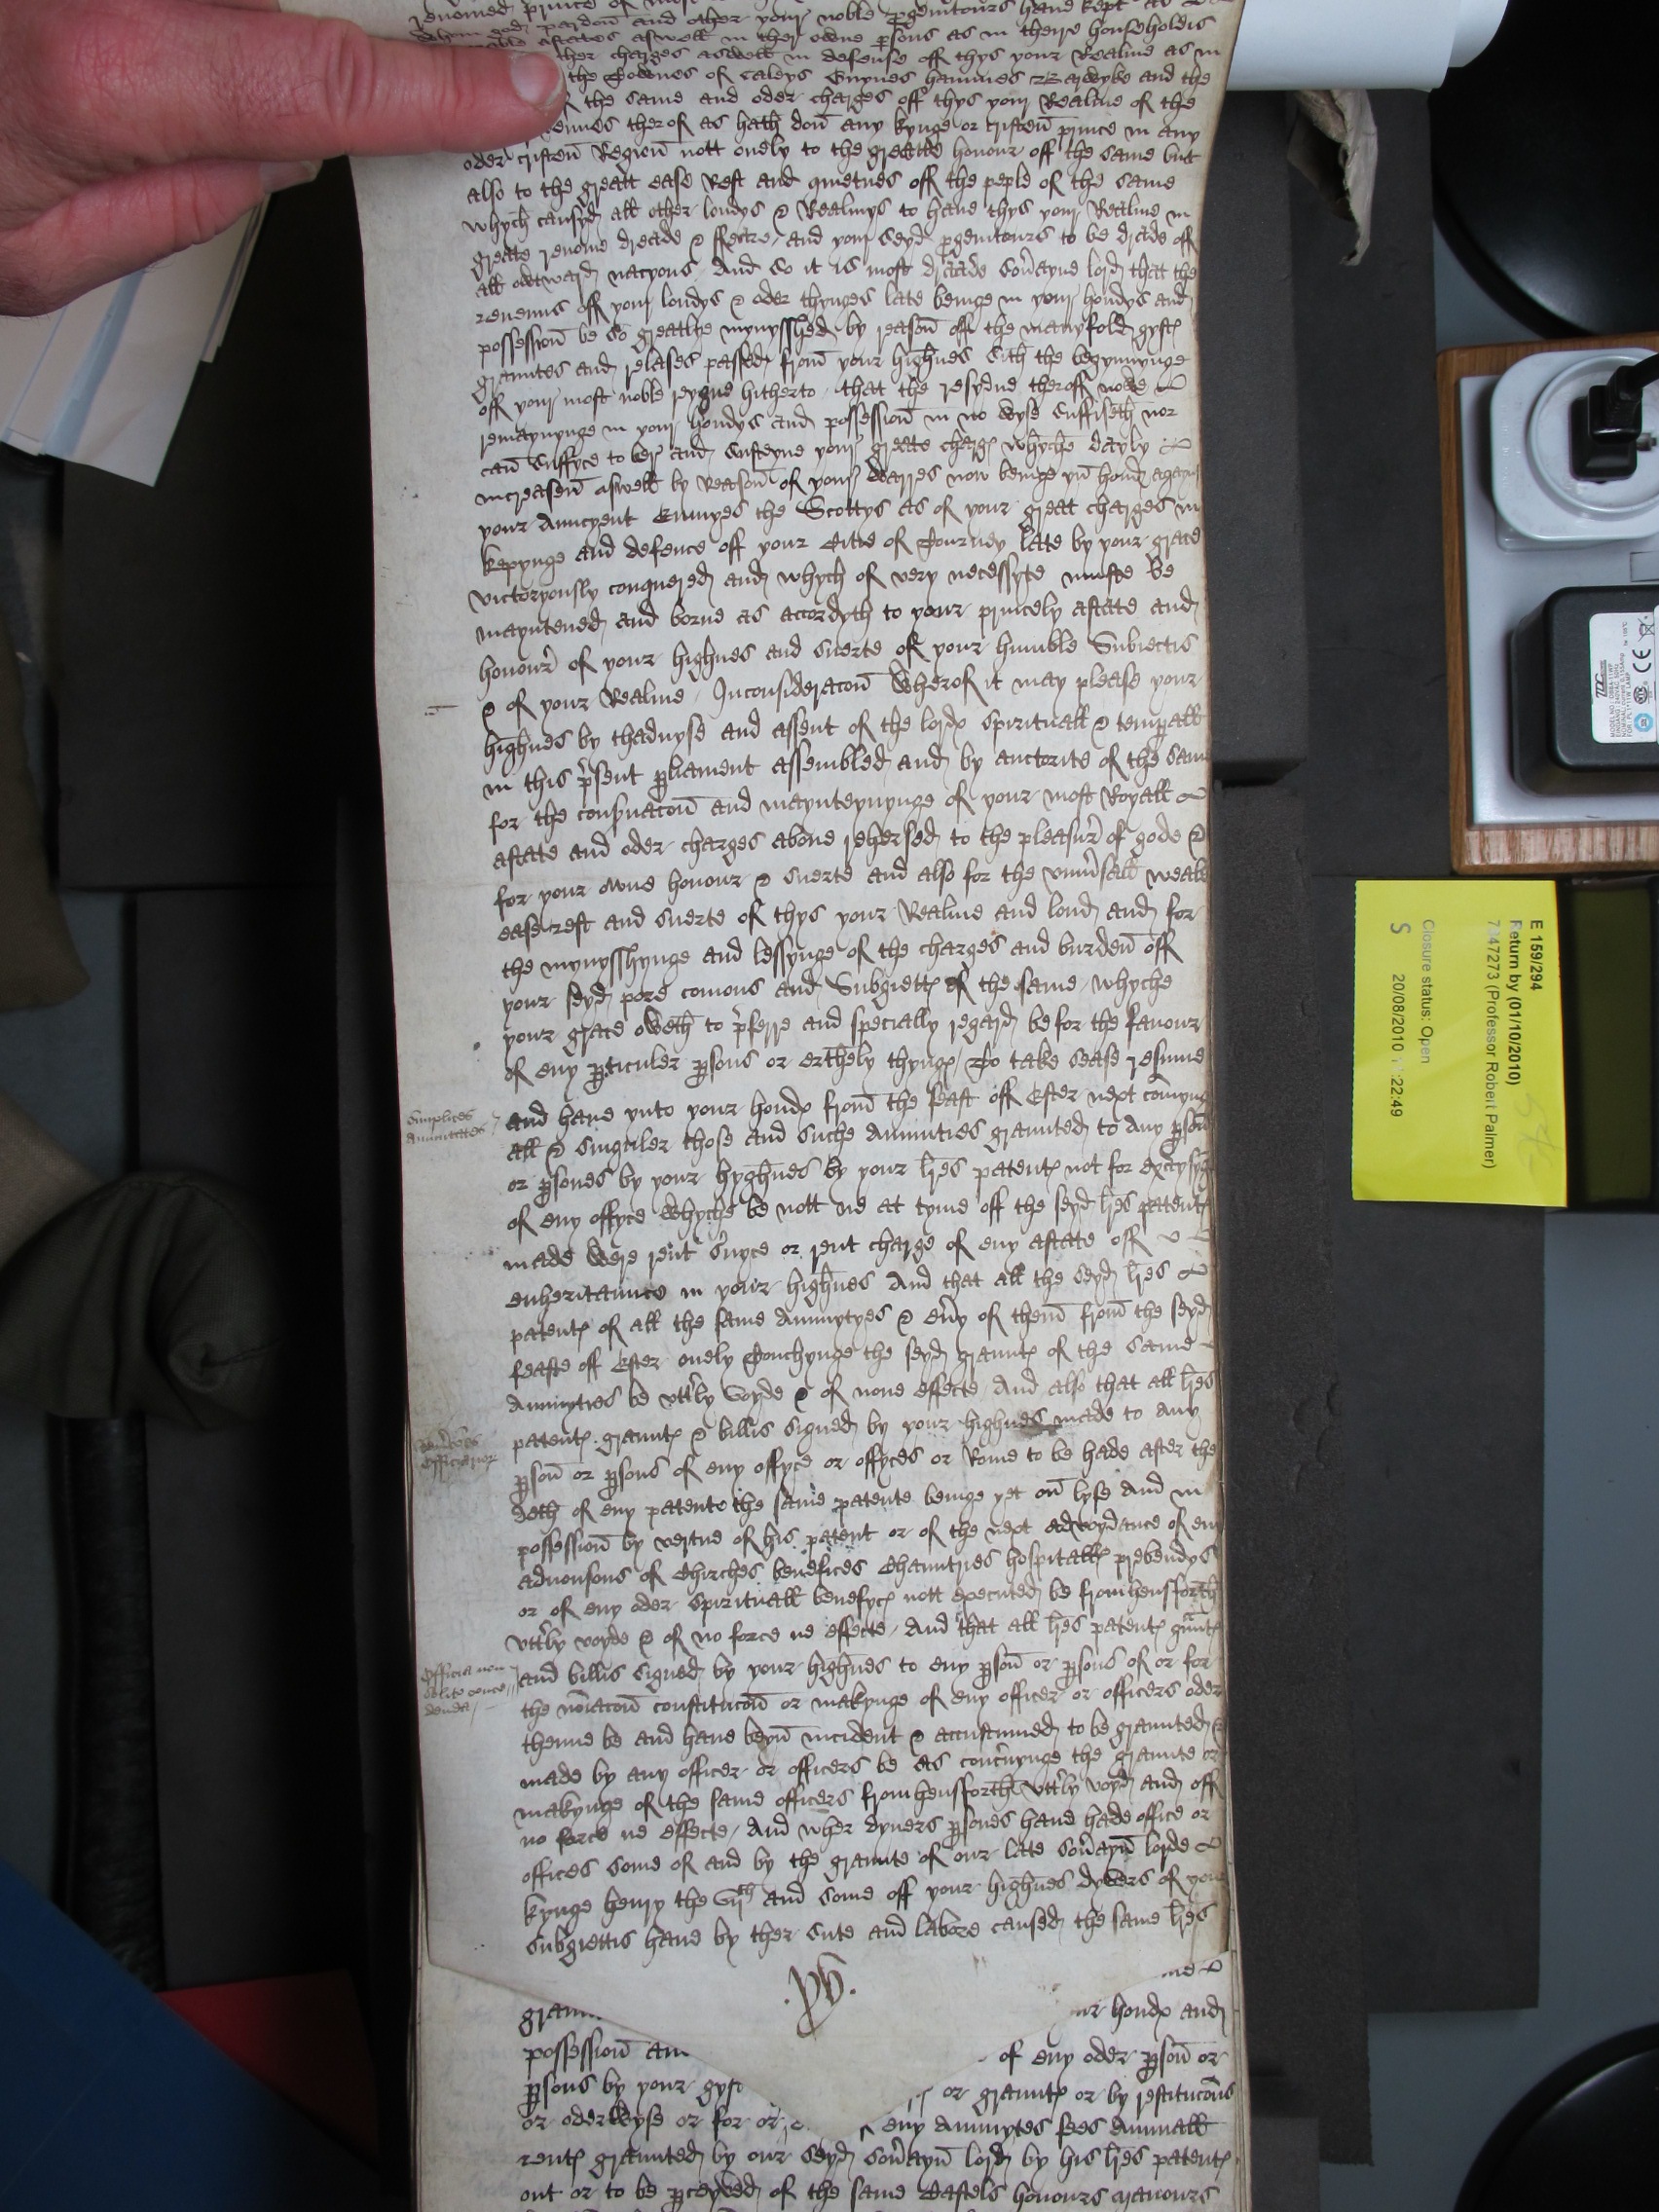 renomed prince of most
whom god pardon and other your noble pgenitours have kept as
noble astates aswell in ther owne psons as in theire householdis
ther charges aswell in defense off thys your Realme as in
the Townes of Caleys Guynes hammes Barwyke and the
the same and oder charges off thys your Realme of the
ther of as hath don any kynge or cristen prince in any
oder cristen Region nott onely to the greatte honour off the same but
also to the greatt ease Rest and quietnes off the peple of the same
whych causyd all other londys & Realmys to have thys your Realme in
greate renome dreade & ffeare and your seyd pgenitours to be drade off
all outward nacyons And so it is most drade soverayne lord that the
revenus off your londys & oder thynges late beinge in your hondys and
possession be so greatlye mynysshed by reason off the manyfold gyftes
grauntes and relases passed from your highnes sith the begynnynge
off your most noble reygne hitherto that the resydue theroff nowe
remaynynge in your hondys and possession in no wyse suffiseth nor
can suffyce to ber and susteyne your greate charges whyche dayly
increasen aswell by reason of your warres now beinge yn hond agayn
your Auncyent Enmyes the Scottys as of your great charges in
kepynge and defence off your Citie of Tourney late by your grace
victoryously conquered and whych of very necessyte muste be
mayntened and borne as accordyth to your princely astate and
honour of your highnes and suerte of your humble Subiectis
& of your Realme Inconsideracon wherof it may please your
highnes by thadvyse and assent of the lordes spirituall & temporall
in this present pliament assembled and by auctorite of the same
for the conservacon and maynteynynge of your most Royall
astate and oder charges above rehersed to the pleasure of gode &
for your owne honour & suerte and also for the universall weale
ease rest and suerte of thys your Realme and lond and for
the mynysshynge and lessynge of the charges and burden off
your seyd pore comons and Subgiettes of the same whyche
your grace oweth to pferre and specially regard before the favour
of eny pticuler psons or erthely thynges To take sease resume
and have unto your hondes from the feast off Ester next comyng
all & singuler those and suche Annuities graunted to any pson
or psones by your hyghnes by your lres patentes not for excersysyng
of eny offyce whyche be nott ne at tyme off the seyd lres patentes
made were rent servyce or rent charge of eny astate off
enheritaunce in your highnes And that all the seyd lres
patentes of all the same Annuytyes & every of them from the seyd
feaste off Ester onely touchynge the seyd grauntes of the same
Annuytres be utterly voyde & of none effecte And also that all lres
patentes grauntes & billis signed by your highnes made to any
pson or psons of eny offyce or offyces or Rome to be hade after the
deth of eny patente the same patente beinge yet on lyfe And in
possession by vertue of his patent or of the next advoydance of eny
advousons of Chirches benefices Chauntries hospitalles prebendys
or of eny oder spirituall benefyces nott executed be fromhensforth
utterly voyde & of no force ne effecte And that all lres patentes grauntes
and billis signed by your highnes to eny pson or psons of or for
the noiacon constitucon or makynge of eny officer or officers oder
thenne be and have beyn incident & accustumed to be graunted &
made by any officer or officers be as concernynge the graunte or
makynge of the same officers fromhensforth utterly voyd and off
no force ne effecte And wher dyvers psones have hade office or
offices some of and by the graunte of our late soverayn lorde
kynge henry the viith and some off your highnes dyvers of your
subgiettis have by ther sute and labore caused the same lres
Simplices
Annuitates
Officia non
solite conce
denda
graun
hondes and
possession an
of eny oder pson or
psons by your gyft
or grauntes or by restitucons
or oderwyse or for or
eny Annuytes fees Annuall
rentes graunted by our seyd soverayn lord by his lres patentes
out or to be pceyved of the same Castels honours manours
E 159/294
Return by (01/10/2010)
7347273 (Professor Robert Palmer)
Closure status: Open
S 20/08/2010 22:49